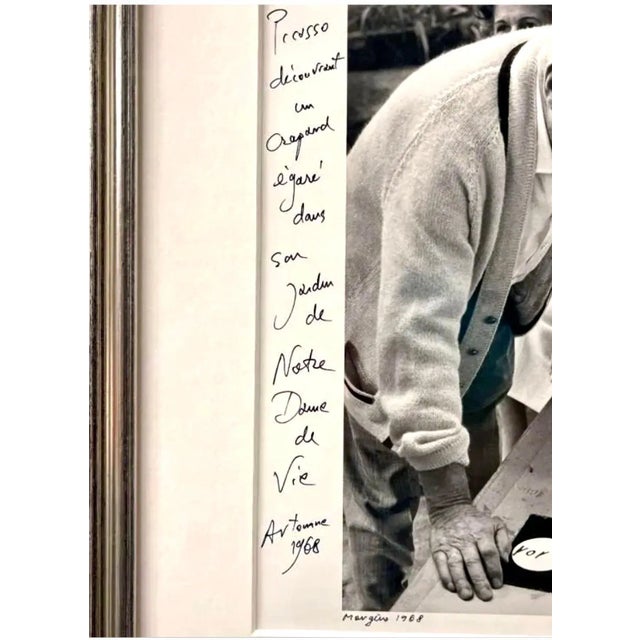 Picasso
découvrant
un
Crapaud
égaré
dans
son
Jardin
de
Notre
Dame
de
Vie
Automne
1968
Mougins 1968